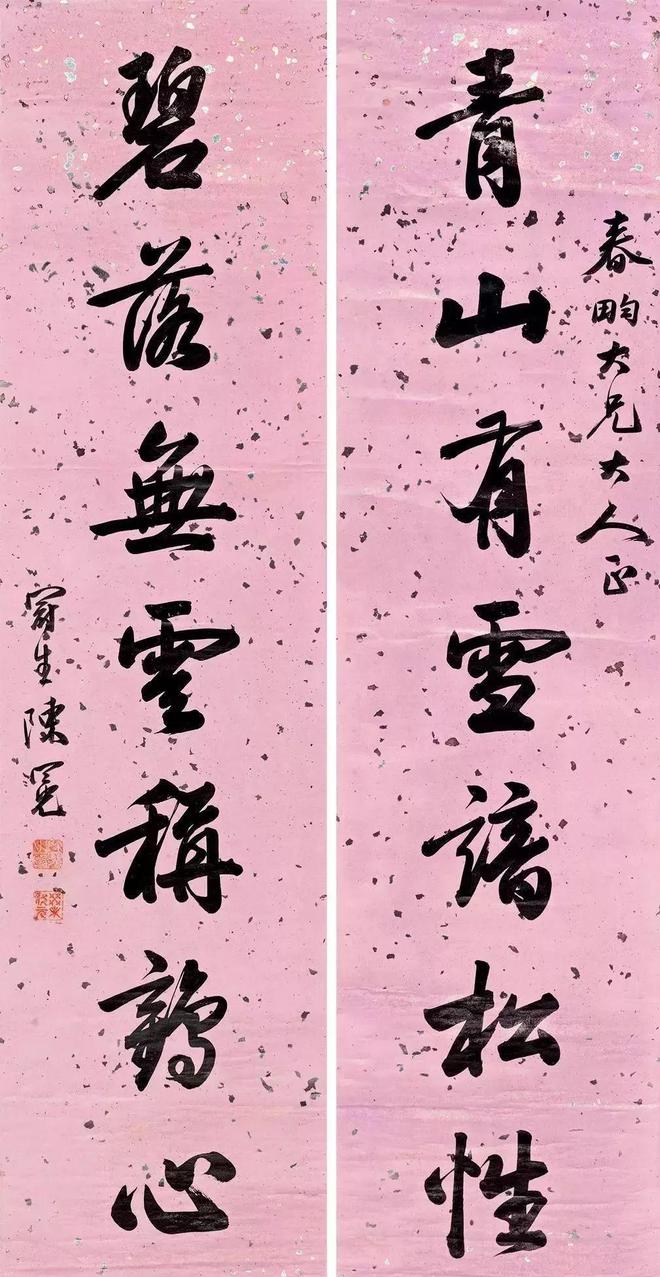 春畇大兄大人正
青山有雪諳松性
碧落無雲稱鶴心
冠生陳冕
癸未狀元